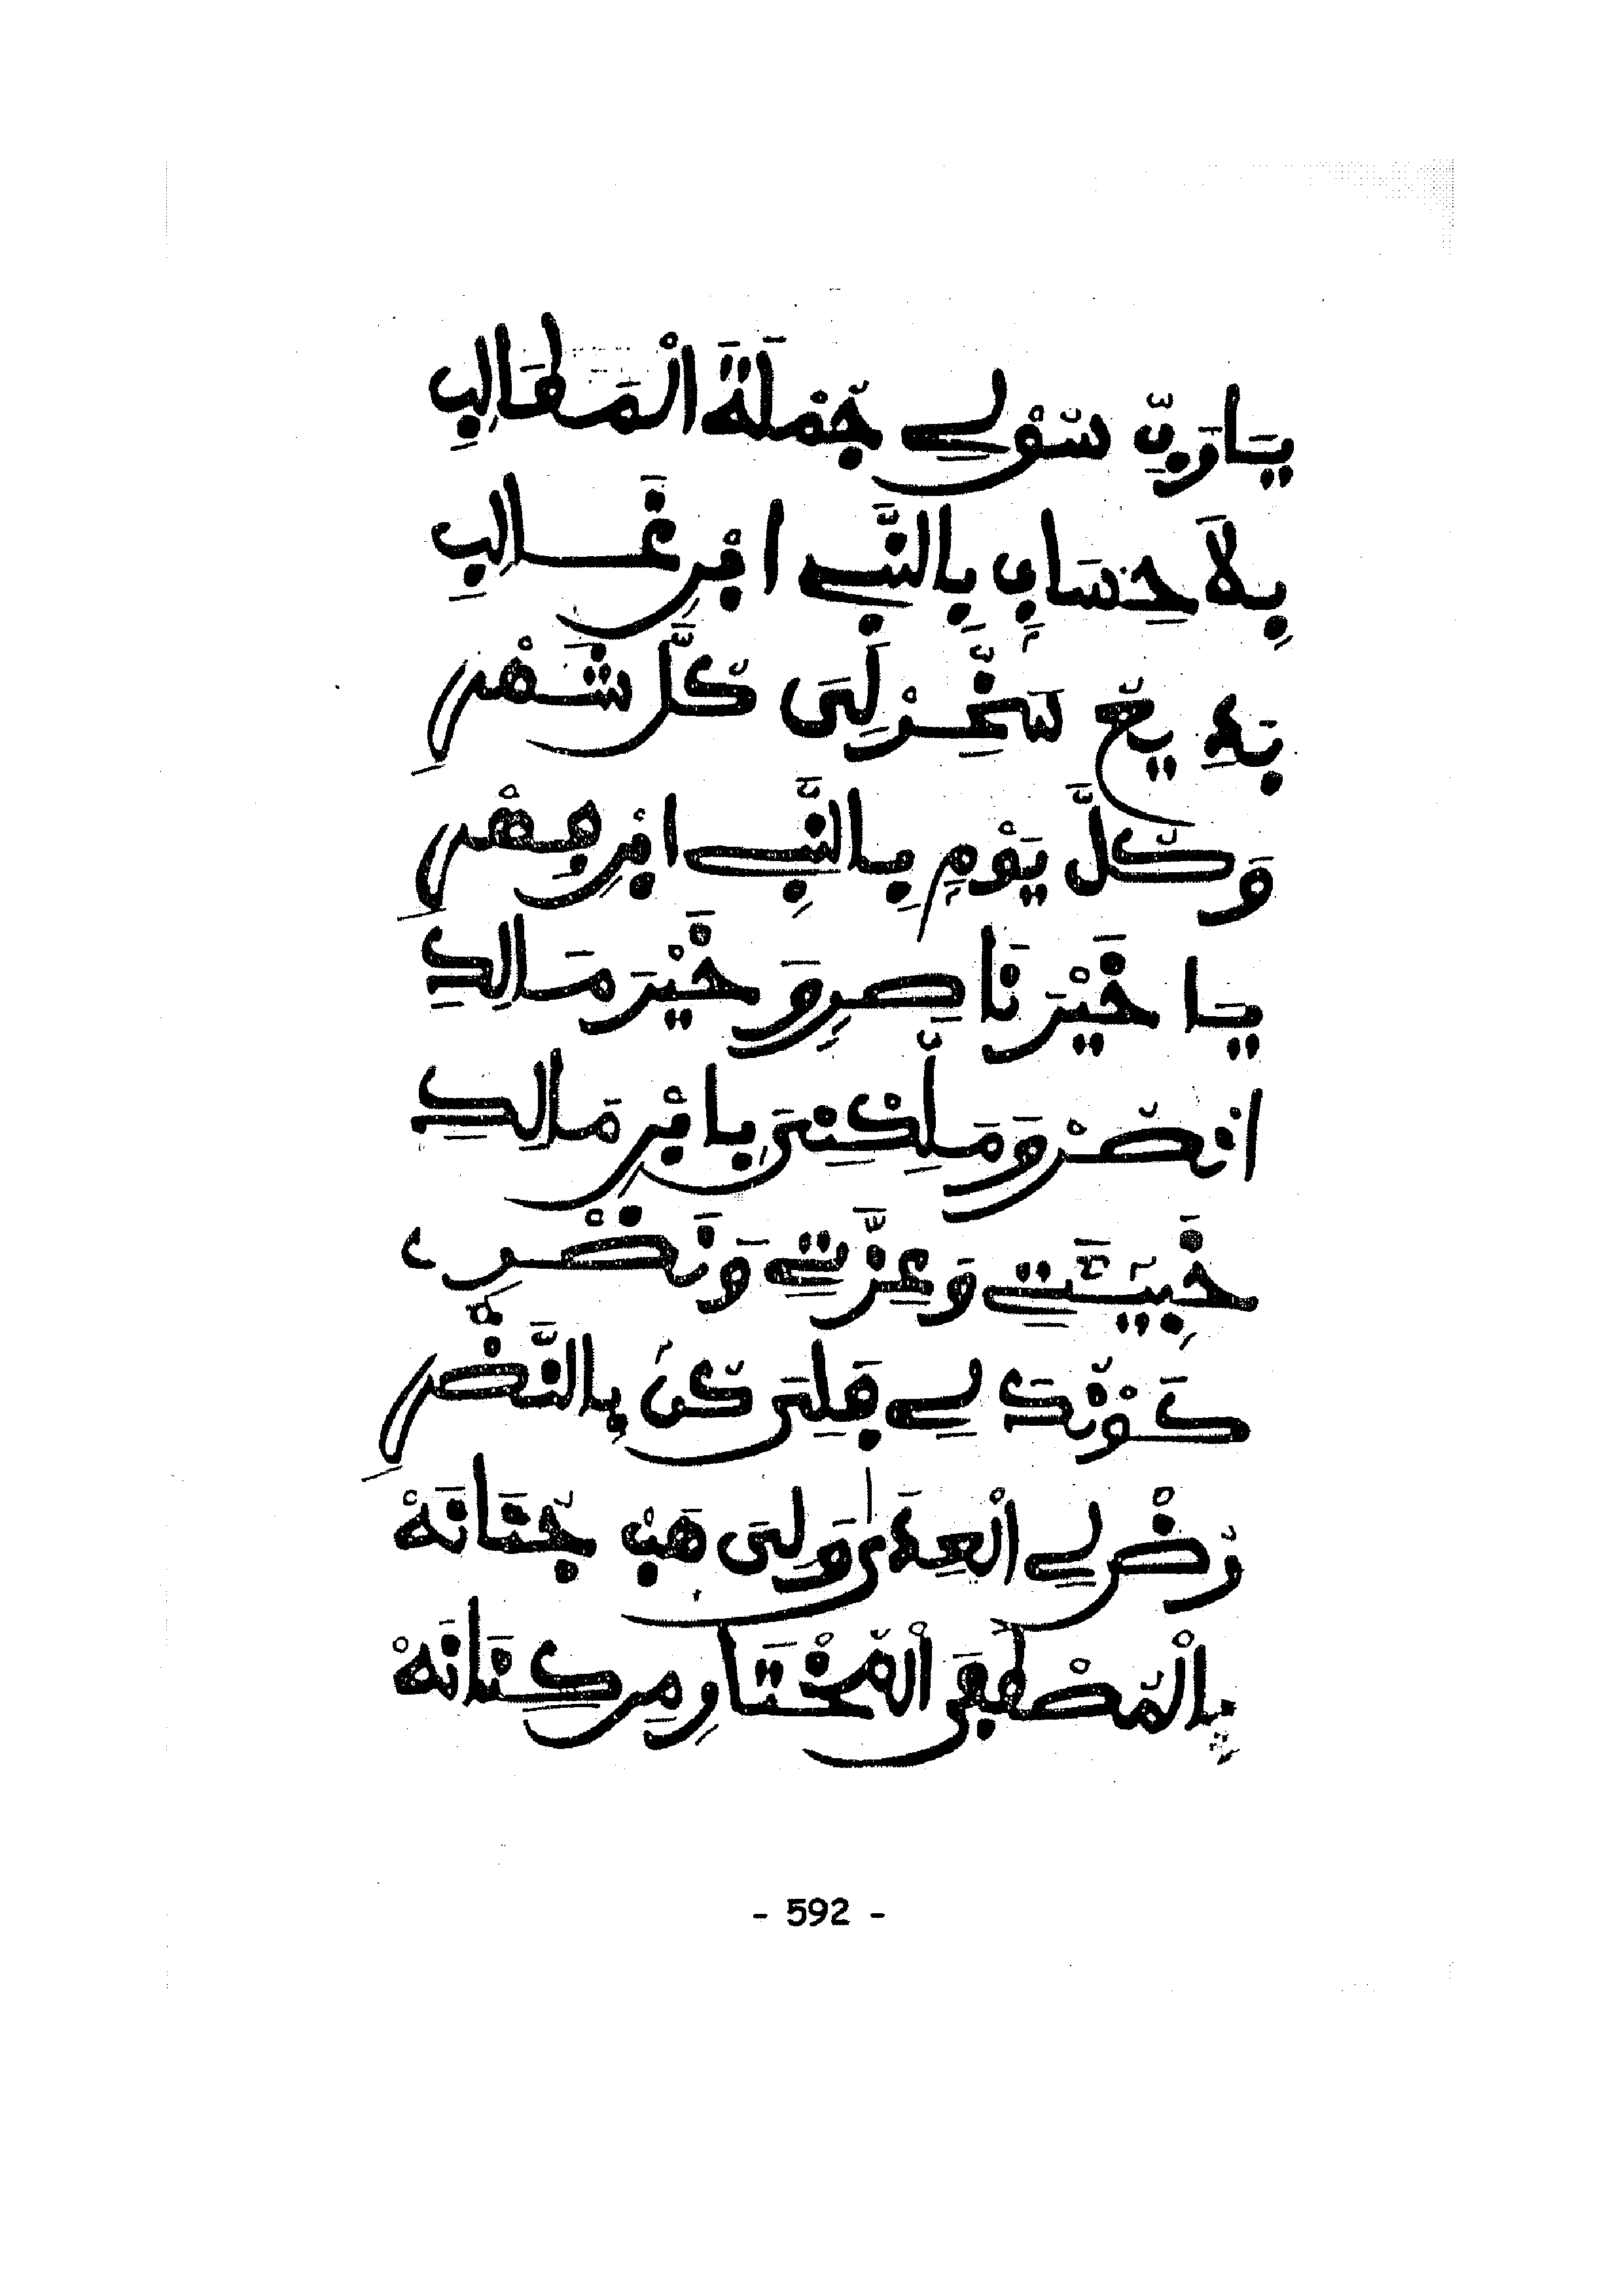 يَارَبِّ سُقْ لِي جُمْلَةَ الْمَطَالِبِ
بِلاَ حِسَابٍ بِالنَّبِي ابْنِ غَالِبِ
بَدِيعُ سَخِّرْ لِيَ كُلَّ شَهْرِ
وَكُلَّ يَوْمٍ بِالنَّبِي ابْنِ فِهْرِ
يَا خَيْرَ نَاصِرٍ وَخَيْرَ مَالِكِ
انْصُرْ وَمَلِّكَنِّيَ بِابْنِ مَالِكِ
خَيْبَتِي وَعِزَّتِي وَنَضْرِ
كَوْنُكَ لِي فَلِيَ كُنْ بِالنَّضْرِ
رُضْ لِي الْعِدَى وَلِيَ هَبْ جُنَانَهْ
بِالْمُصْطَفَى الْمُخْتَارِ مِنْ كِنَانَهْ
- 592 -